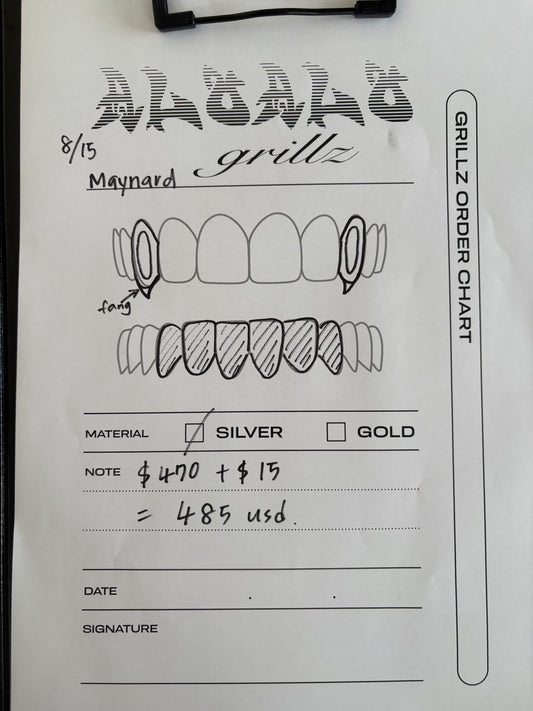 ALUALU
grillz
8/15
Maynard
fang
MATERIAL SILVER GOLD
NOTE $470 + $15
= 485 usd.
DATE . .
SIGNATURE
GRILLZ ORDER CHART